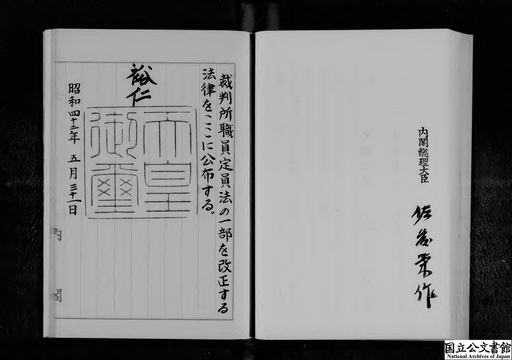 裁判所職員定員法の一部を改正する
法律をここに公布する。
裕仁
天皇
御璽
昭和四十三年五月三十一日
内閣総理大臣
佐藤栄作
国立公文書館
National Archives of Japan